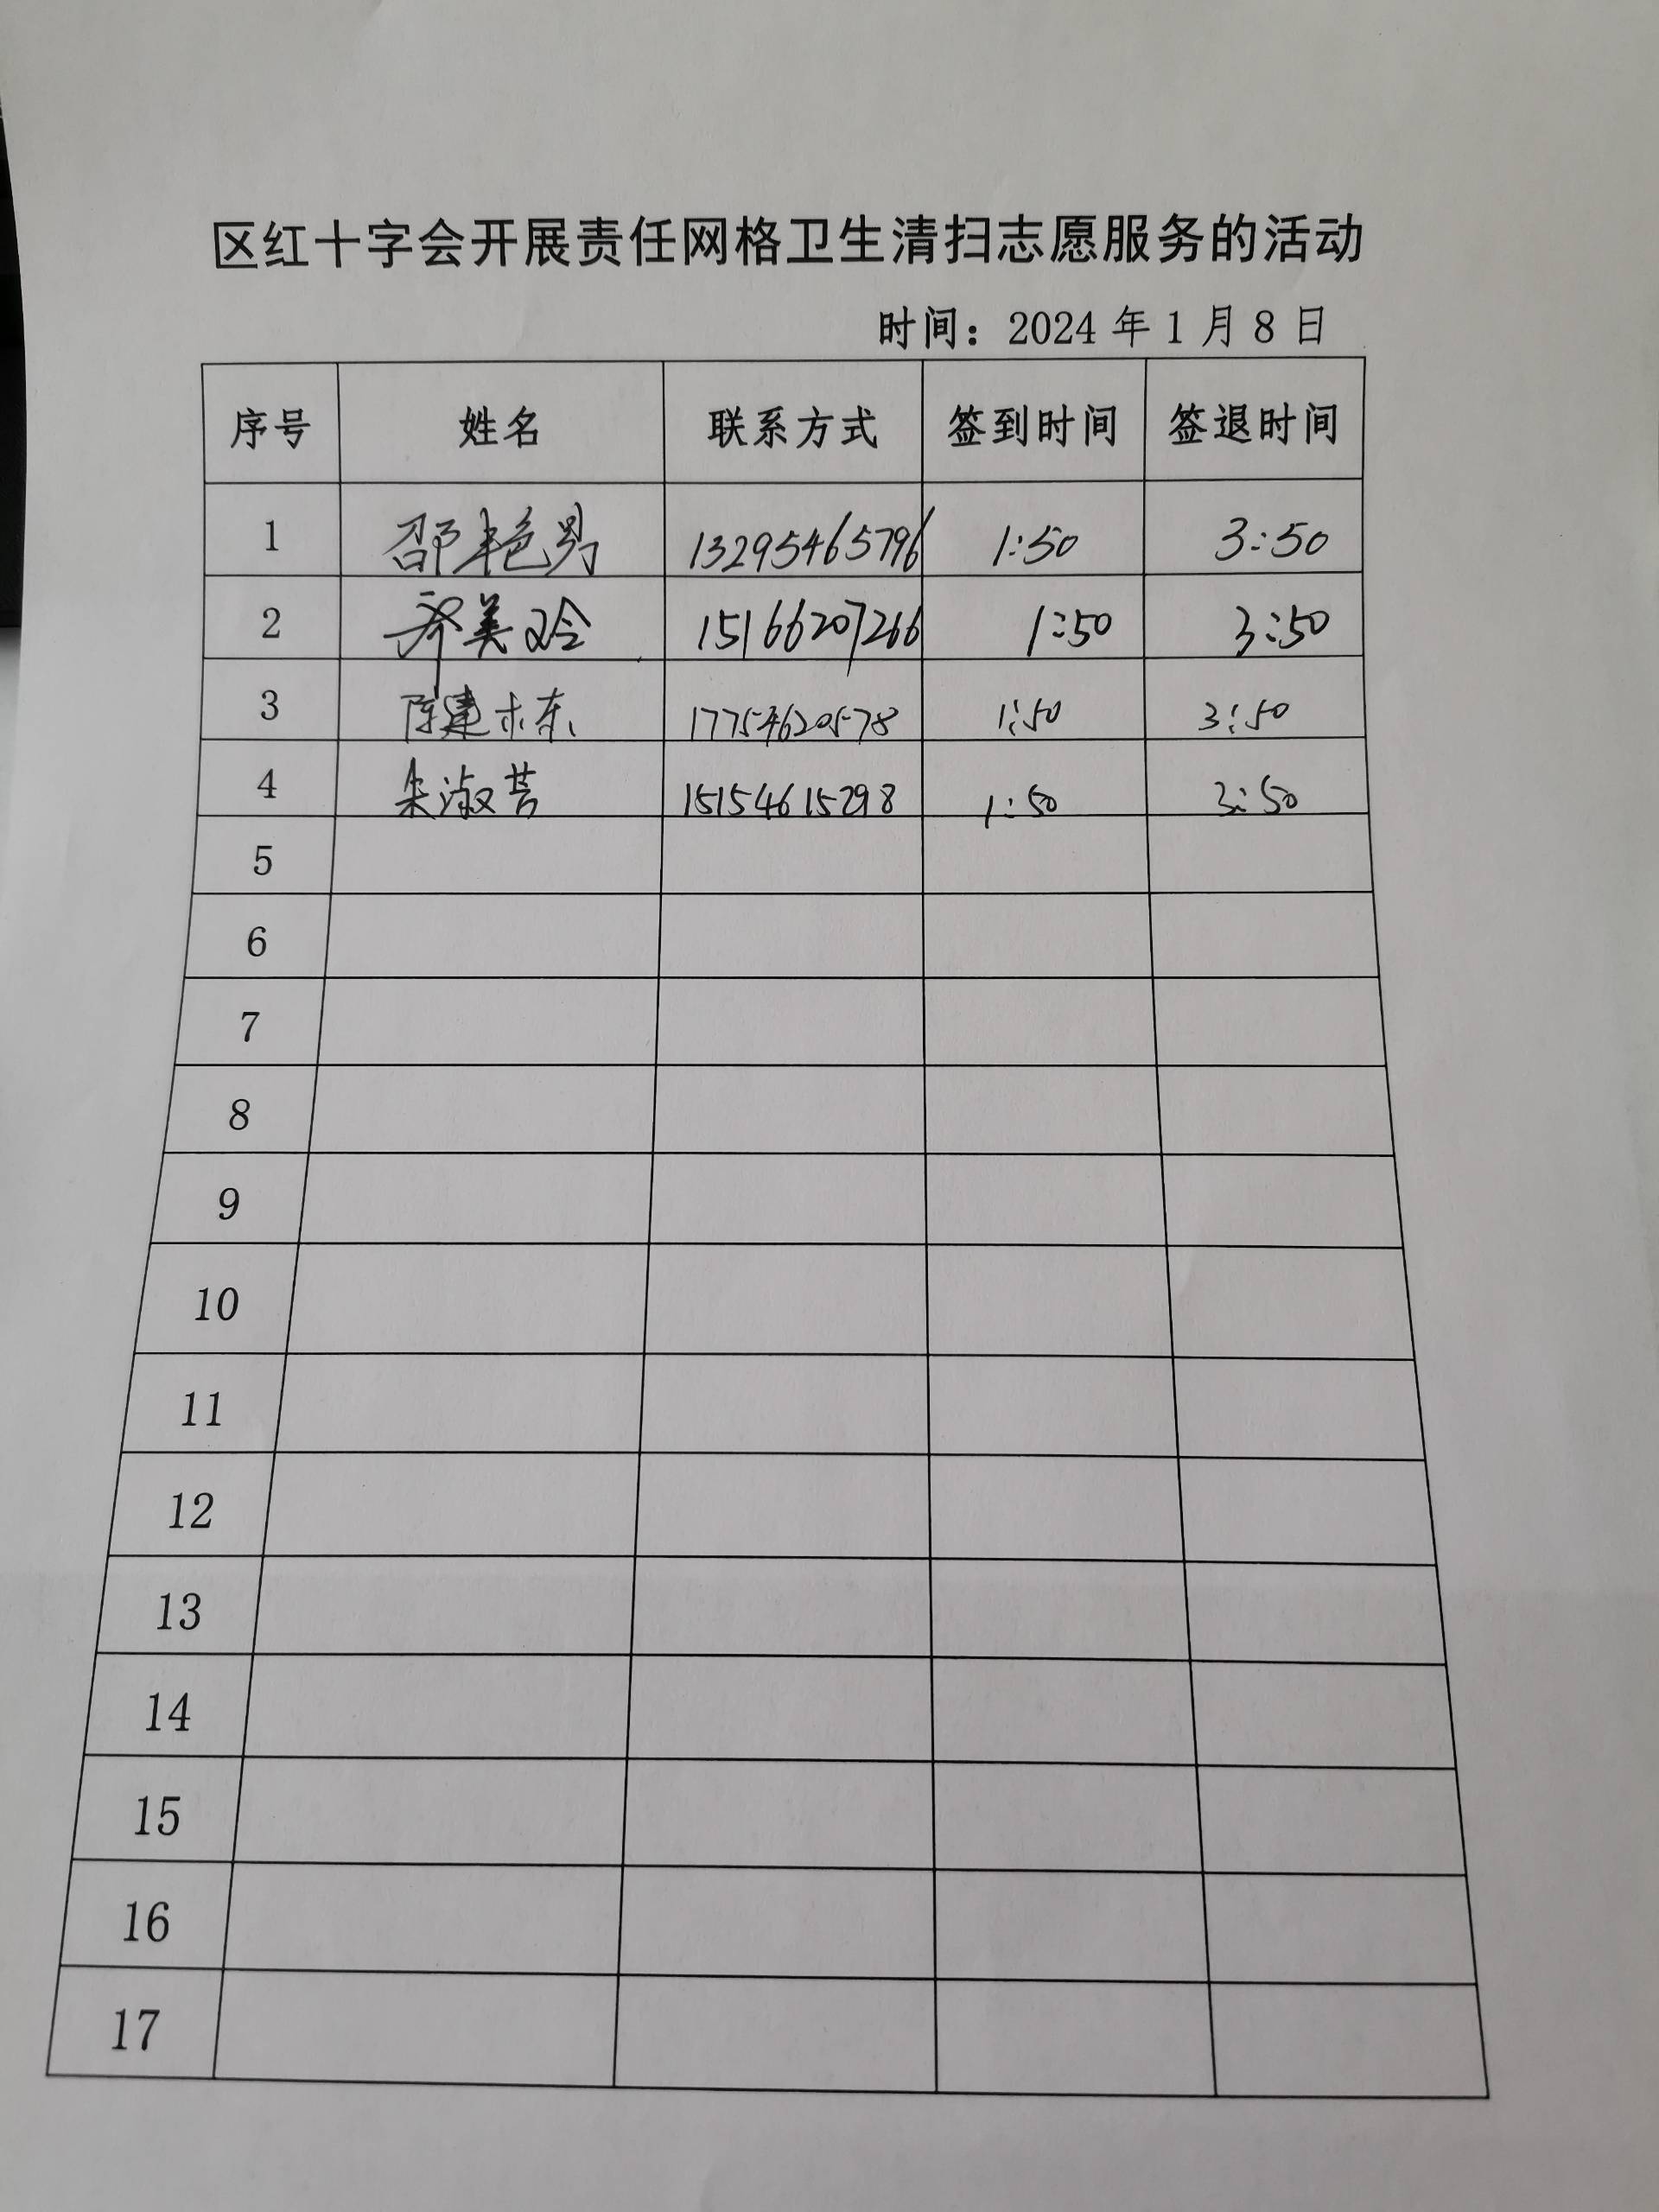 区红十字会开展责任网格卫生清扫志愿服务的活动
时间：2024年1月8日
序号 姓名 联系方式 签到时间 签退时间
1 邵艳男 13295465796 1:50 3:50
2 美玲 15166207266 1:50 3:50
3 陈建栋 17754620578 1:50 3:50
4 朱淑 15154615298 1:50 3:50
5
6
7
8
9
10
11
12
13
14
15
16
17